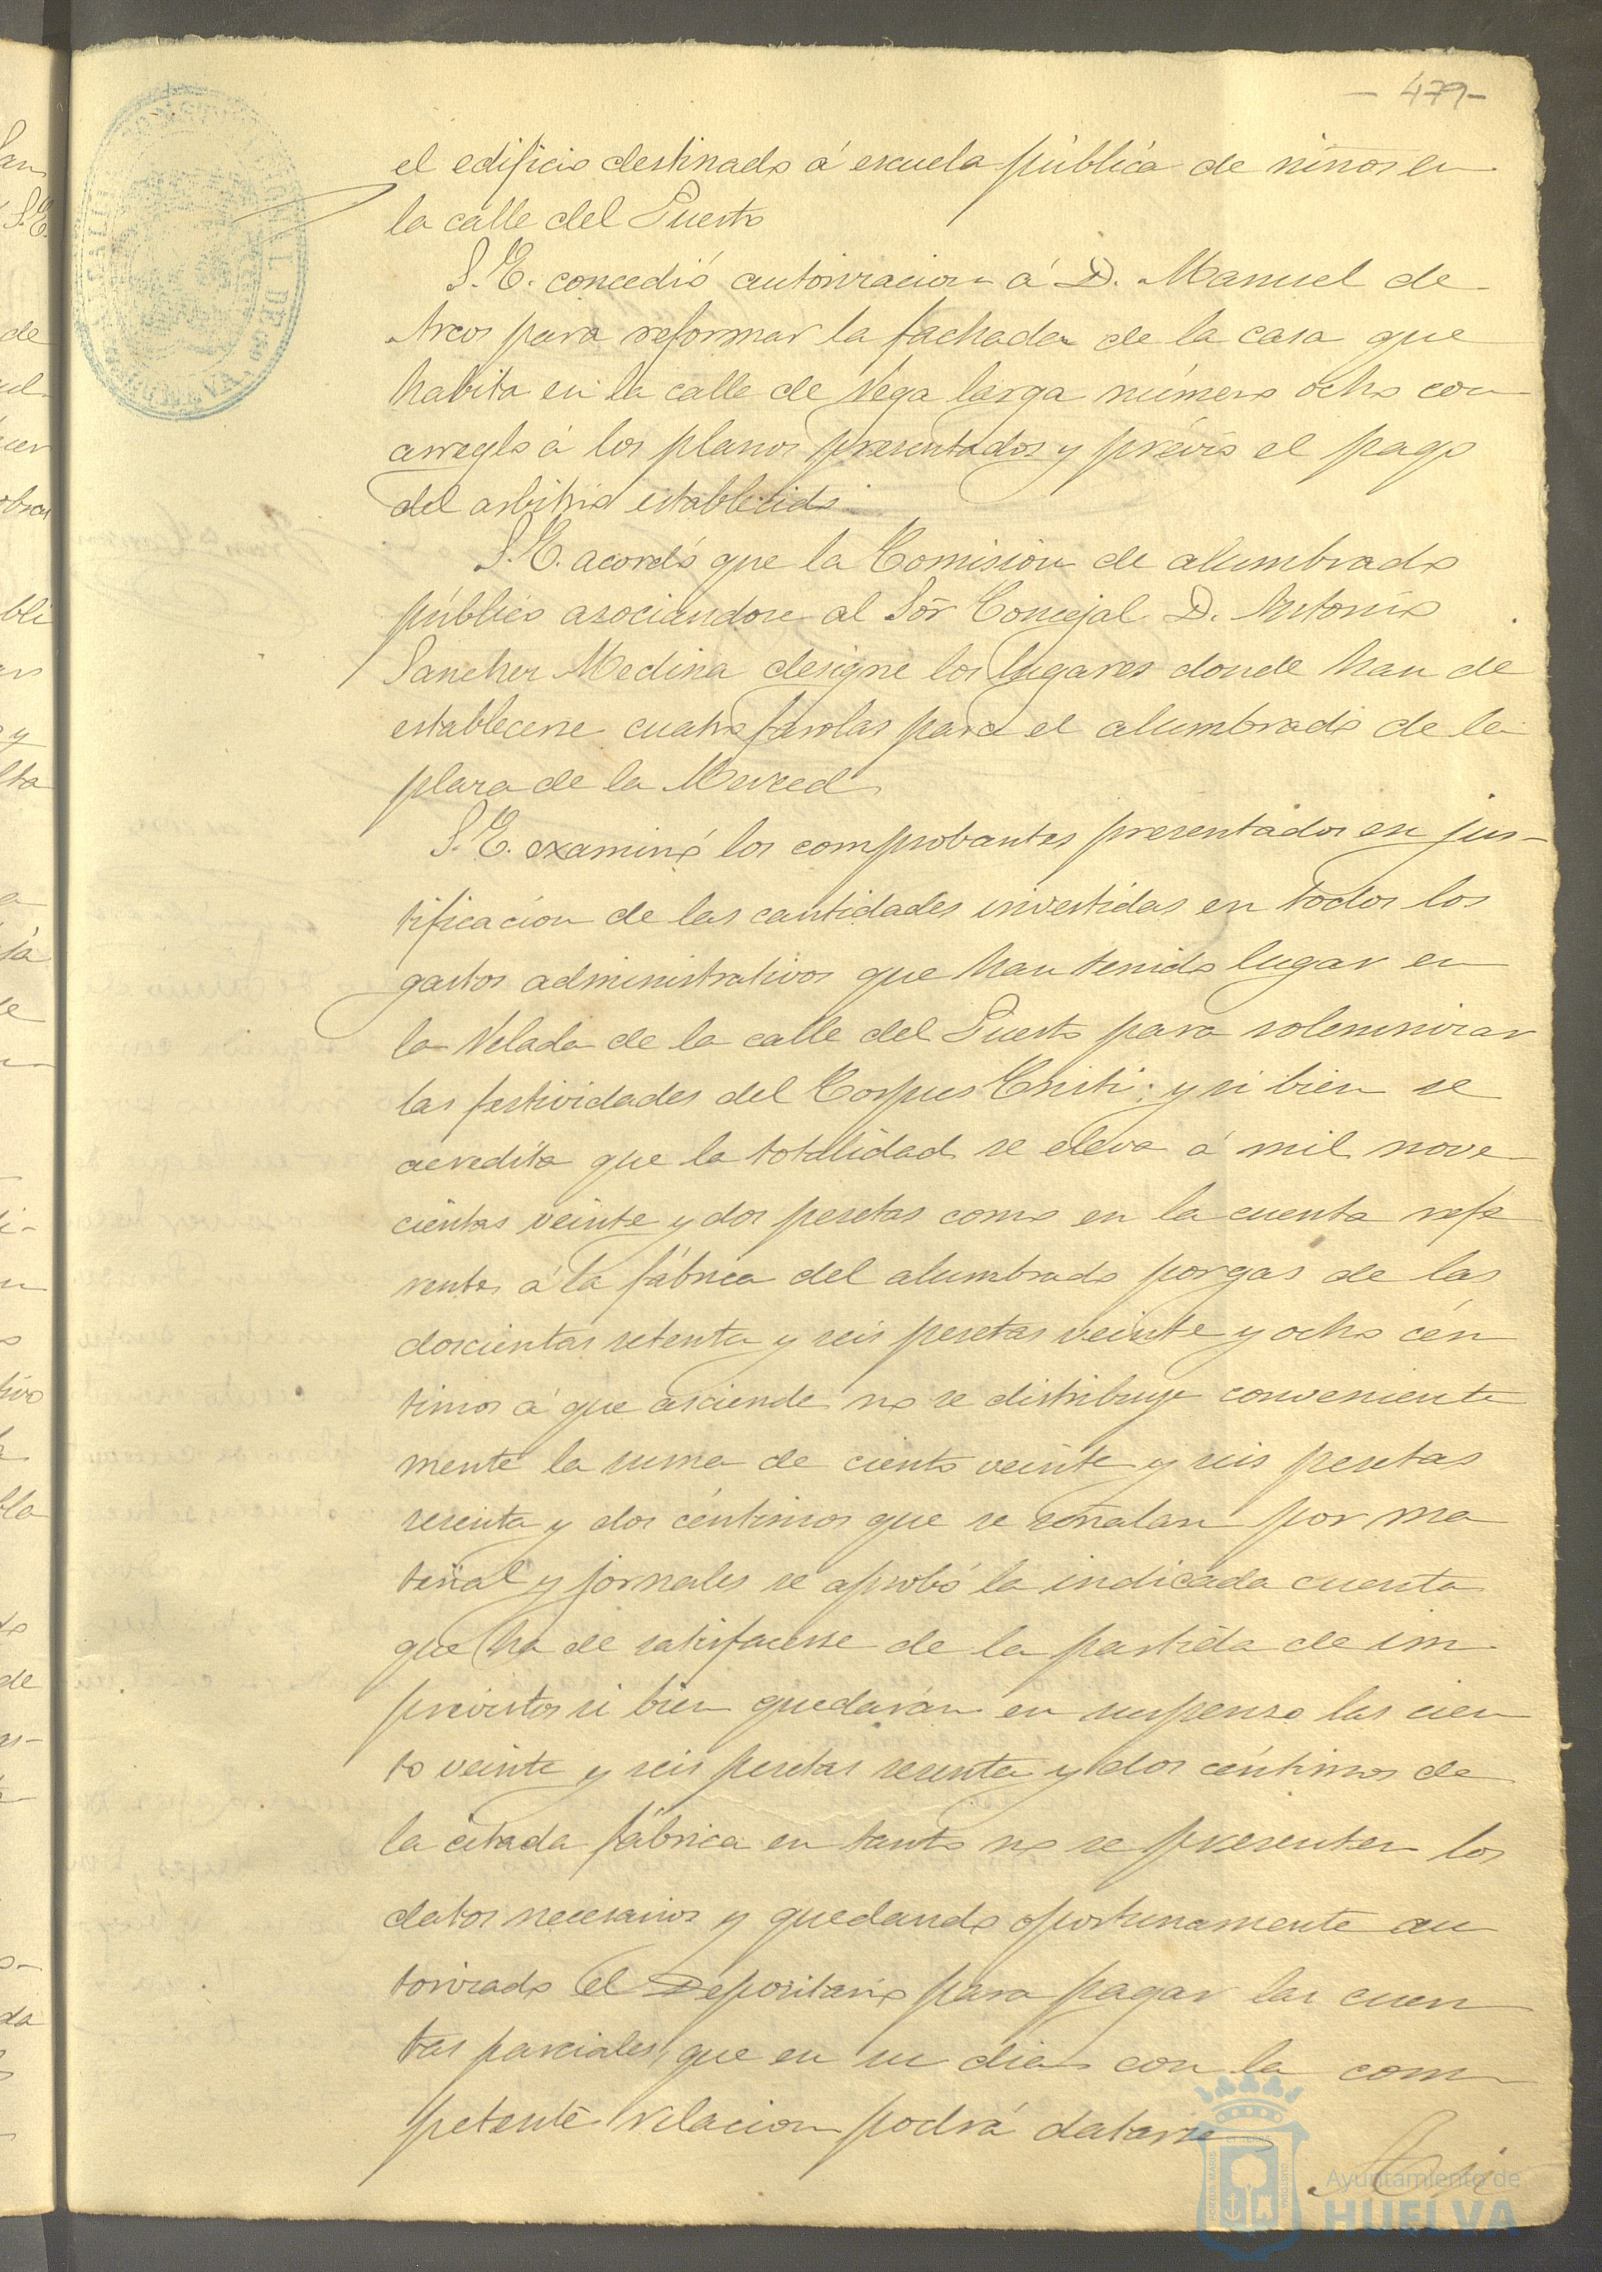 - 479 -
el edificio destinado á escuela pública de niños en
la calle del Puerto
S. E. concedió autorizacion á D. Manuel de
Arcos para reformar la fachada de la casa que
habita en la calle de Vega larga número ocho con
arreglo á los planos presentados y prévio el pago
del arbitrio establecido.
S. E. acordó que la Comisión de alumbrado
público asociandose al Sór Concejal D. Antonio
Sanchez Medina designe los lugares donde han de
establecerse cuatro farolas para el alumbrado de la
plaza de la Merced
S. E. examinó los comprobantes presentados en jus-
tificacion de las cantidades invertidas en todos los
gastos administrativos que han tenido lugar en
la Velada de la calle del Puerto para solemnizar
las festividades del Corpus Cristi; y si bien se
acredita que la totalidad se eleva á mil nove
cientas veinte y dos pesetas como en la cuenta refe
rente á la fábrica del alumbrado por gas de las
doscientas setenta y seis pesetas veinte y ocho cén
timos á que asciende no se distribuye conveniente
mente la suma de ciento veinte y seis pesetas
sesenta y dos céntimos que se señalan por ma
terial y jornales se aprobó la indicada cuenta
que ha de satisfacerse de la partida de im
previstos si bien quedarán en suspenso las cien
to veinte y seis pesetas sesenta y dos céntimos de
la citada fábrica en tanto no se presenten los
datos necesarios y quedando oportunamente au
torizado el Depositario para pagar las cuen
tas parciales que en su dia con la com
petente relacion podrá datarse
Así
Ayuntamiento de
HUELVA